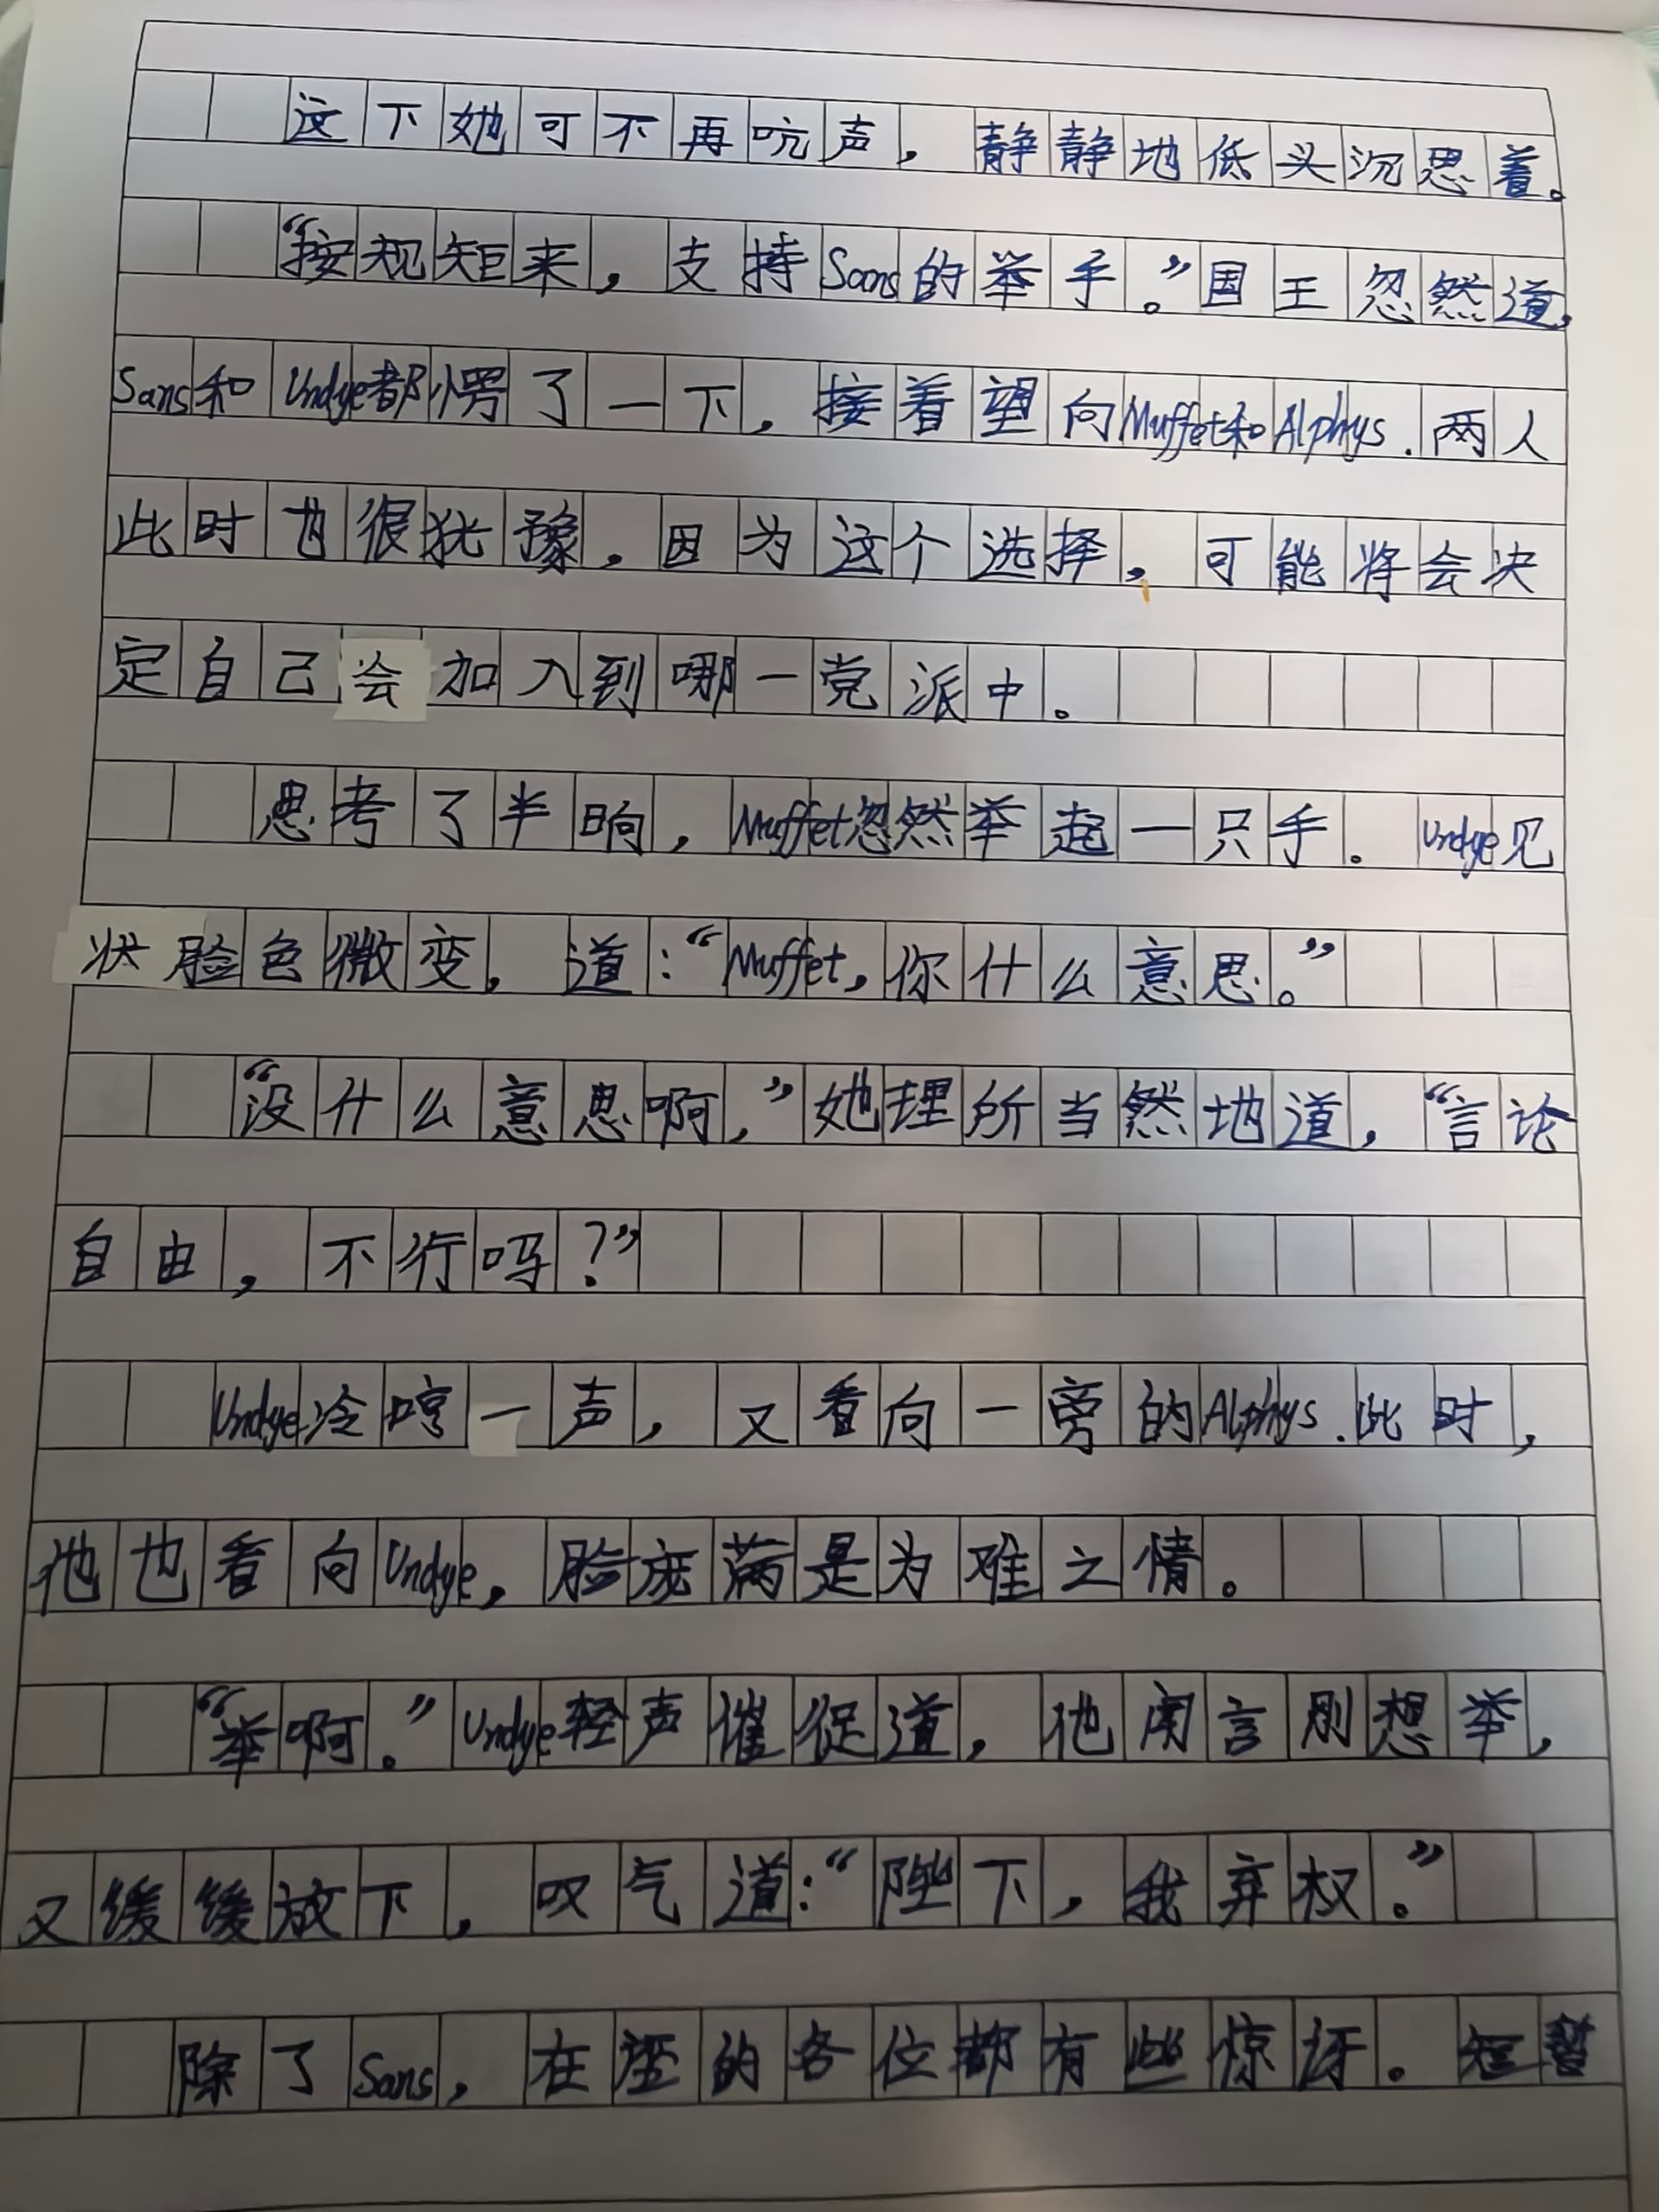 这下她可不再吭声，静静地低头沉思着。
“按规矩来，支持Sans的举手。”国王忽然道，
Sans和Undye都愣了一下，接着望向Muffet和Alphys.两人
此时也很犹豫，因为这个选择，可能将会决
定自己会加入到哪一党派中。
思考了半晌，Muffet忽然举起一只手。Undye见
状脸色微变，道：“Muffet，你什么意思。”
“没什么意思啊，”她理所当然地道，“言论
自由，不行吗？”
Undye冷哼一声，又看向一旁的Alphys.此时，
他也看向Undye，脸庞满是为难之情。
“举啊。”Undye轻声催促道，他闻言刚想举，
又缓缓放下，叹气道：“陛下，我弃权。”
除了Sans，在座的各位都有些惊讶。短暂